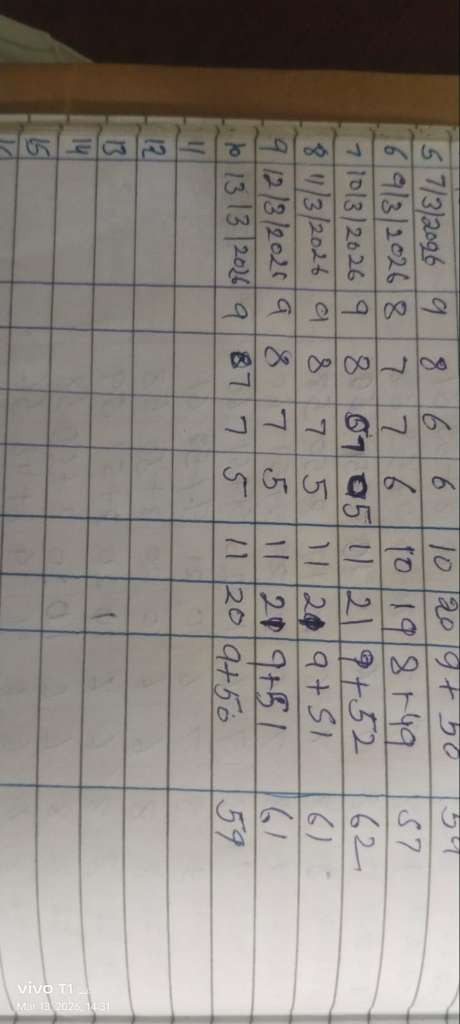 5 7/3/2026 9 8 6 6 10 20 9+50 59
6 9/3/2026 8 7 7 6 10 19 8+49 57
7 10/3/2026 9 8 7 5 11 21 9+52 62
8 11/3/2026 9 8 7 5 11 21 9+51 61
9 12/3/2026 9 8 7 5 11 21 9+51 61
10 13/3/2026 9 87 7 5 11 20 9+50 59
11
12
13
14
15
16
vivo T1
Mar 13, 2026, 14:31